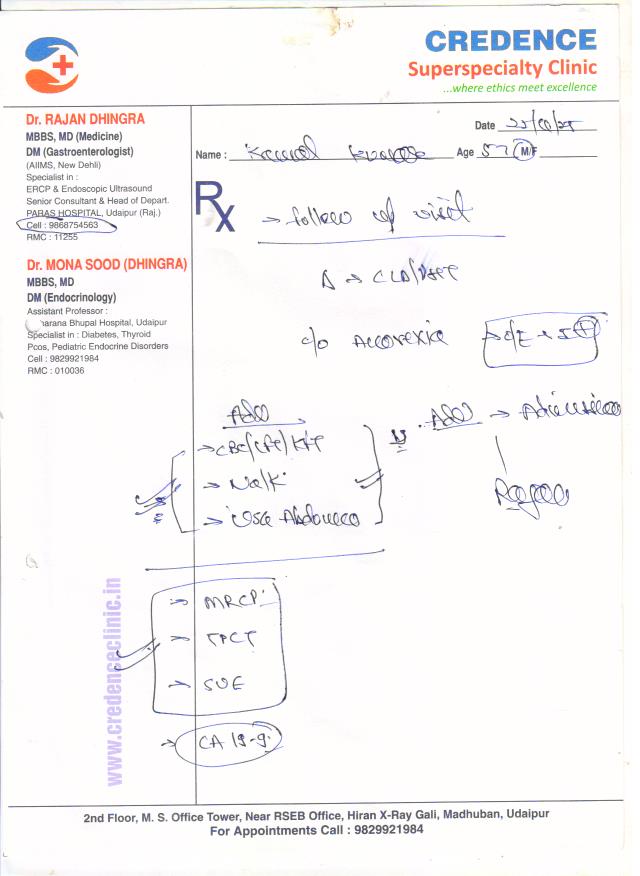 CREDENCE
Superspecialty Clinic
...where ethics meet excellence
Dr. RAJAN DHINGRA
MBBS, MD (Medicine)
DM (Gastroenterologist)
(AIIMS, New Dehli)
Specialist in :
ERCP & Endoscopic Ultrasound
Senior Consultant & Head of Depart.
PARAS HOSPITAL, Udaipur (Raj.)
Cell : 9868754563
RMC : 11255
Dr. MONA SOOD (DHINGRA)
MBBS, MD
DM (Endocrinology)
Assistant Professor :
arana Bhupal Hospital, Udaipur
Specialist in : Diabetes, Thyroid
Pcos, Pediatric Endocrine Disorders
Cell : 9829921984
RMC : 010036
Date
Name : Age 57 M/F
Rx
→ follow up visit
Δ → CLD/
c/o Anorexia
Adv
→ CBC/LFT/KFT
→ Na/K
→ USG Abdomen
Adv → Admission
→ MRCP
→ TPCT
→ SOE
→ CA 19-9
www.credenceclinic.in
2nd Floor, M. S. Office Tower, Near RSEB Office, Hiran X-Ray Gali, Madhuban, Udaipur
For Appointments Call : 9829921984